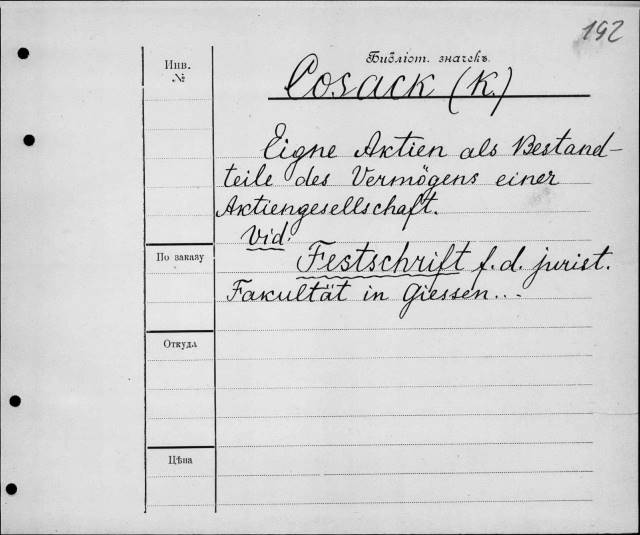 192
Инв.
№
Библіот. значекъ
Cosack (K.)
Eigne Aktien als Bestand-
teile des Vermögens einer
Aktiengesellschaft.
Vid.
По заказу
Festschrift f. d. jurist.
Fakultät in Giessen...
Откуда
Цѣна